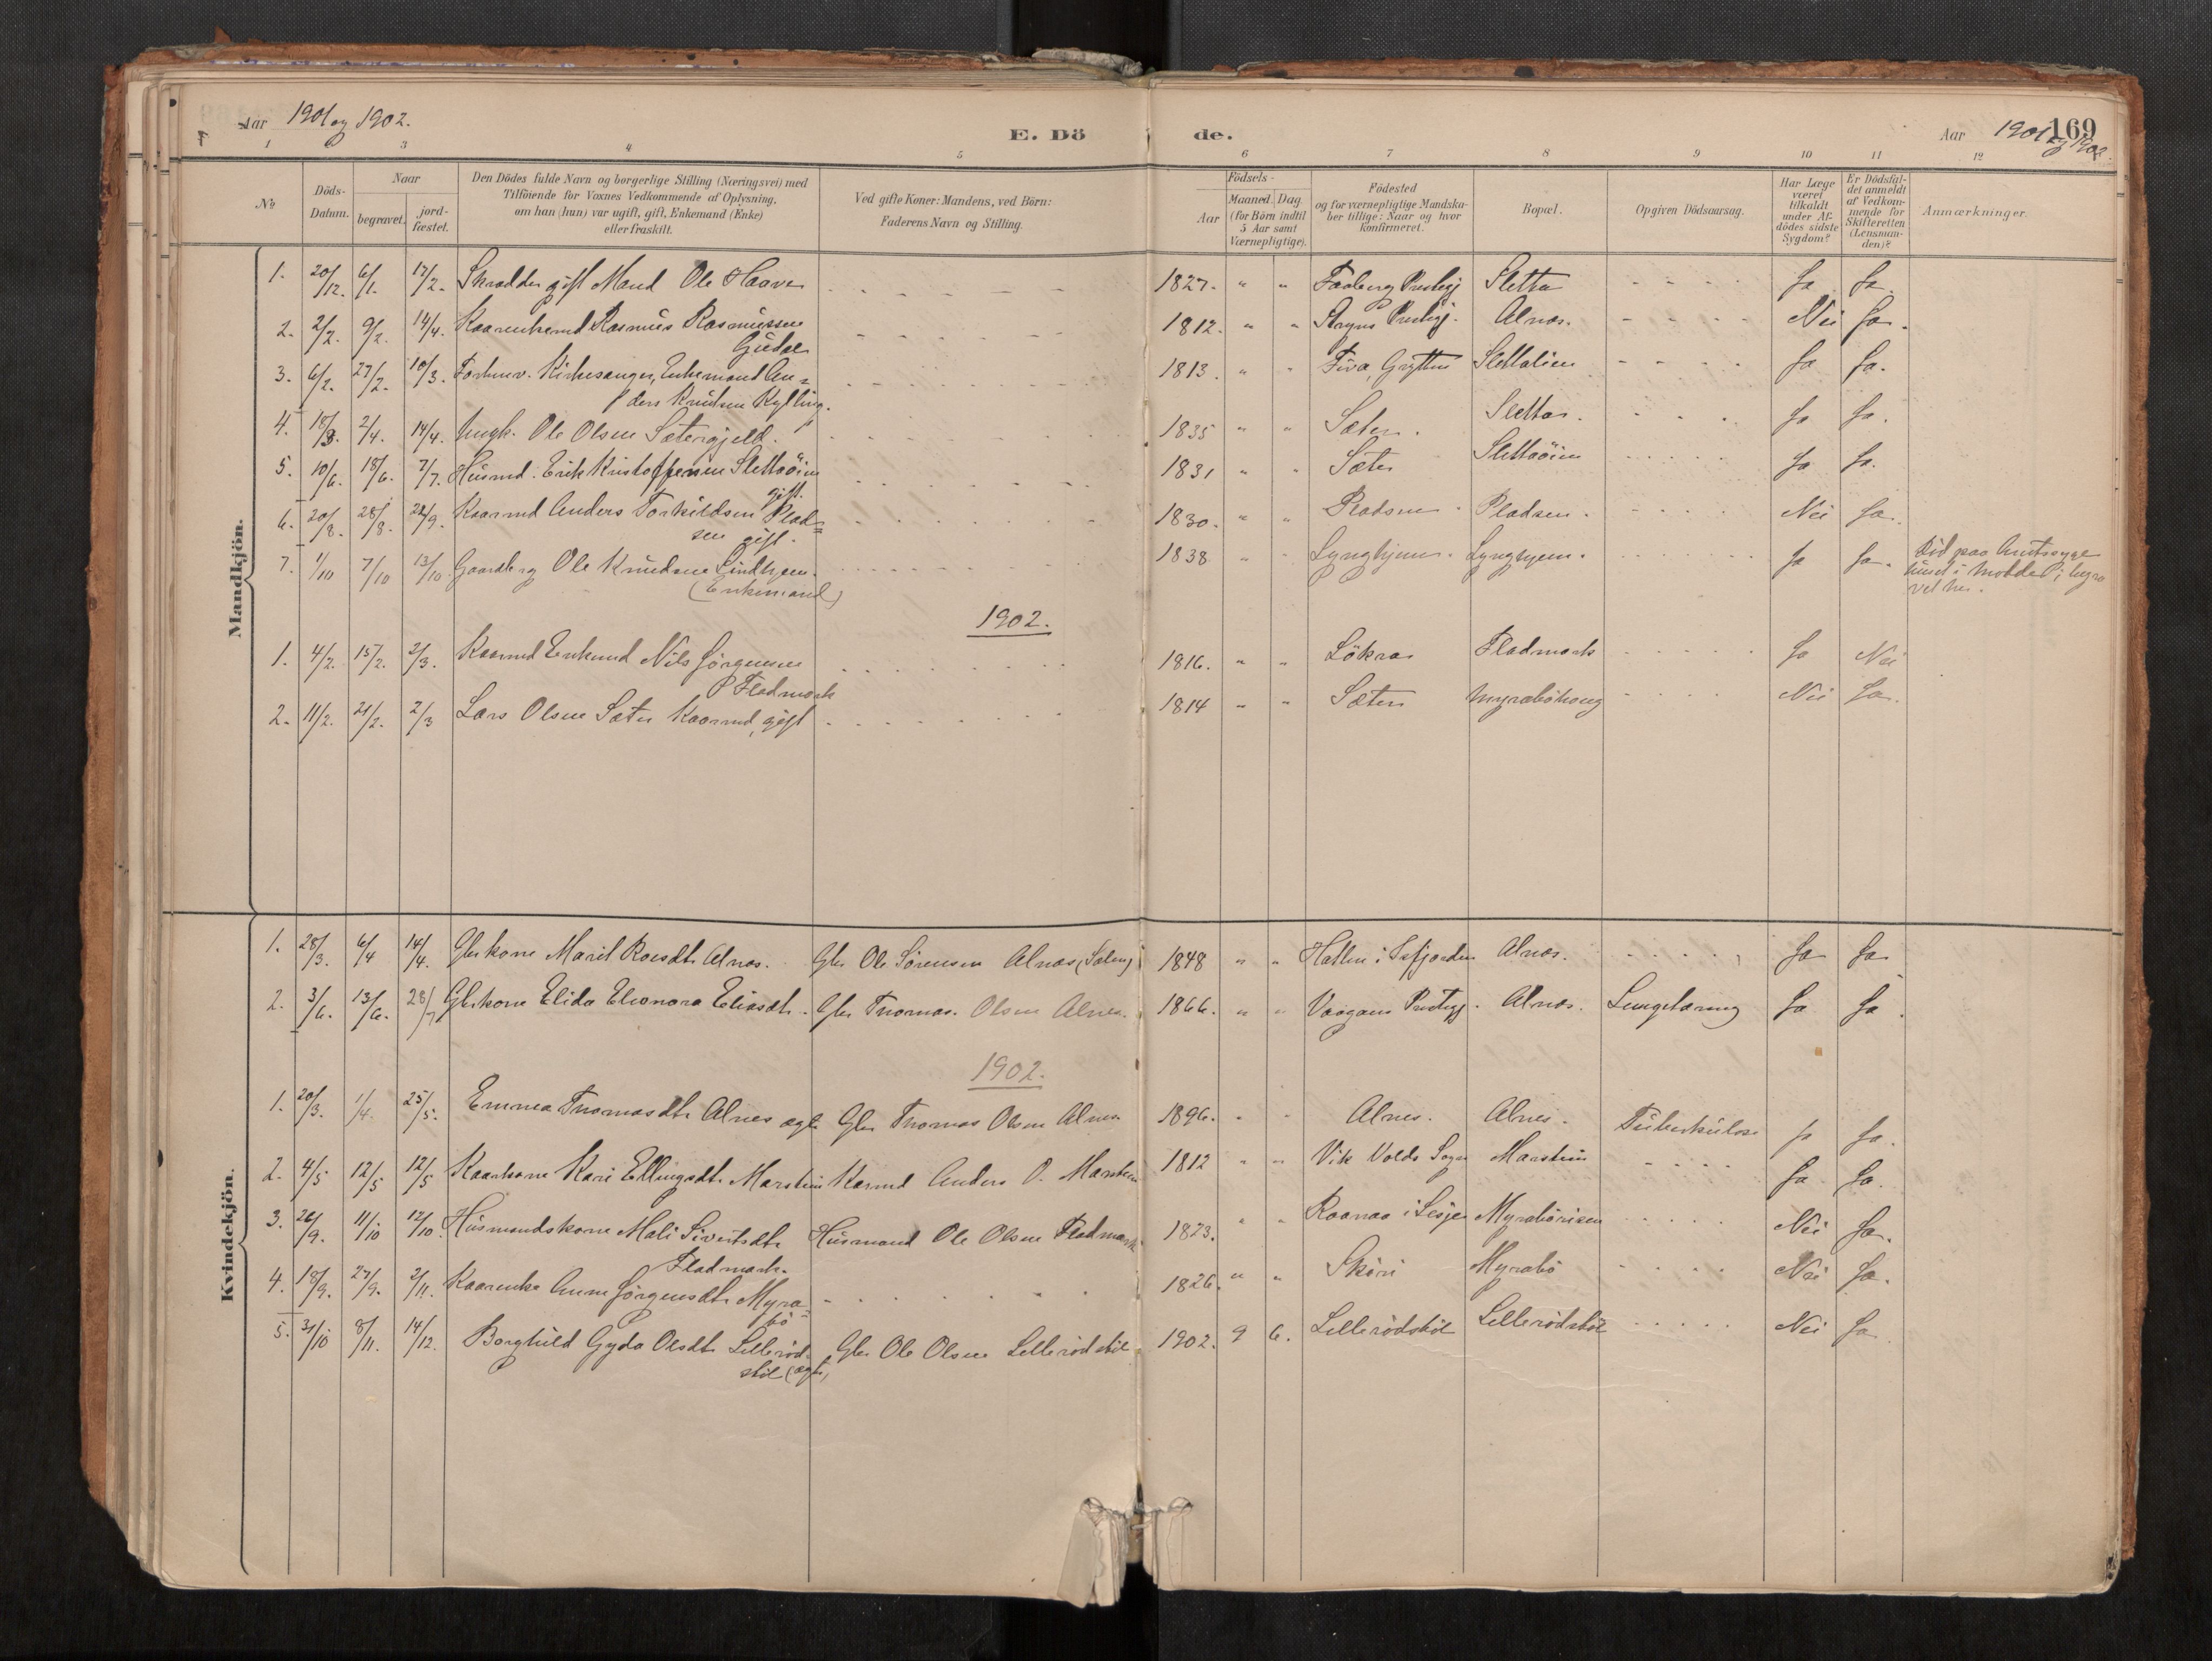 Aar 1901 og 1902.
E. Dö de.
Aar 1901 og 1902.
169
1 2 3 4 5 6 7 8 9 10 11 12
No
Döds-Datum.
Naar
begravet.
jord-fæstet.
Den Dödes fulde Navn og borgerlige Stilling (Næringsvei) med
Tilföiende for Voxnes Vedkommende af Oplysning,
om han (hun) var ugift, gift, Enkemand (Enke)
eller fraskilt.
Ved gifte Koner: Mandens, ved Börn:
Faderens Navn og Stilling.
Födsels-
Aar
Maaned. Dag
(for Börn indtil
5 Aar samt
Værnepligtige).
Födested
og for værnepligtige Mandska-
ber tillige: Naar og hvor
konfirmeret.
Bopæl.
Opgiven Dödsaarsag.
Har Læge
været
tilkaldt
under Af-
dödes sidste
Sygdom?
Er Dödsfal-
det anmeldt
af Vedkom-
mende for
Skifteretten
(Lensman-
den)?
Anmærkninger.
Mandkjön.
1. 20/12. 6/1. 17/2. Skrædder gift Mand Ole Haave 1827. " " Faaberg Prestegj Sletta Ja Ja.
2. 2/2. 9/2. 14/4. Kaarenkemd Rasmus Rasmussen 1812. " " Stryns Prestegj. Alnæs. Nei Ja.
Gudal
3. 6/2. 27/2. 10/3. Forhenv. Kirkesanger, Enkemand An= 1813. " " Fiva, Grytten Slettalien Ja Ja.
ders Knudsen Kylling.
4. 18/3. 2/4. 14/4. Ungk. Ole Olsen Sætergjeld. 1835 " " Sæter. Slettas. Ja Ja.
5. 10/6. 18/6. 7/7. Husmd. Erik Kristoffersen Slettaöien 1831 " " Sæter Slettaöien Ja Ja.
gift.
6. 20/8. 28/8. 22/9. Kaarmd Anders Torkildsen Plad= 1830. " " Pladsen. Pladsen. Nei Ja.
sen gift.
7. 1/10 7/10 13/10 Gaardbrg Ole Knudsen Lindhjem. 1838 " " Lynghjem. Lynghjem. Ja Ja. Död paa Amtssyge
(Enkemand) huset i Molde; begra
vet her.
1902.
1. 4/2. 15/2. 2/3. Kaarmd Enkemd Nils Jörgensen 1816. " " Lökra Fladmark Ja Nei
Fladmark
2. 11/2. 21/2. 2/3 Lars Olsen Sæter Kaarmd, gift 1814 " " Sæter Myraböhaug Nei Ja.
Kvindekjön.
1. 28/3. 6/4 14/4. Gbr kone Marit Roesdtr Alnæs. Gbr Ole Sörensen Alnæs 1848 " " Hatlen i Isfjorden Alnæs. Ja Ja
2. 3/6. 13/6. 28/7 Gbrkone Elida Eleonora Eliasdtr. Gbr Thomas Olsen Alnes. 1866. " " Vaagans Prestegj. Alnæs. Lungetæring Ja Ja.
1902.
1. 20/3. 1/4. 25/5. Emma Thomasdtr Alnes ægte Gbr Thomas Olsen Alnes 1896. " " Alnes. Alnes. Tuberkulose Ja Ja.
2. 4/5 12/5 12/5 Kaarkone Kari Ellingsdtr Marstein Karmd Anders O. Marstein 1812 " " Vik Volds Sogn Marstein Ja Ja.
3. 26/9. 11/10 12/10. Husmandskone Mali Sivertsdtr Husmand Ole Olsen Fladmark 1823. " " Raanaa i Lesje Myraböreisen Nei Ja.
Fladmark.
4. 18/9. 27/9. 2/11. Kaarenke Anne Jörgensdtr Myra= 1826. " " Skiri Myrabö Nei Ja.
bö
5. 31/10 8/11. 14/12. Borghild Gyda Olsdtr Lilleröd- Gbr Ole Olsen Lillerödstöl 1902. 9 6. Lillerödstöl Lillerödstöl Nei Ja.
stöl (ægte)